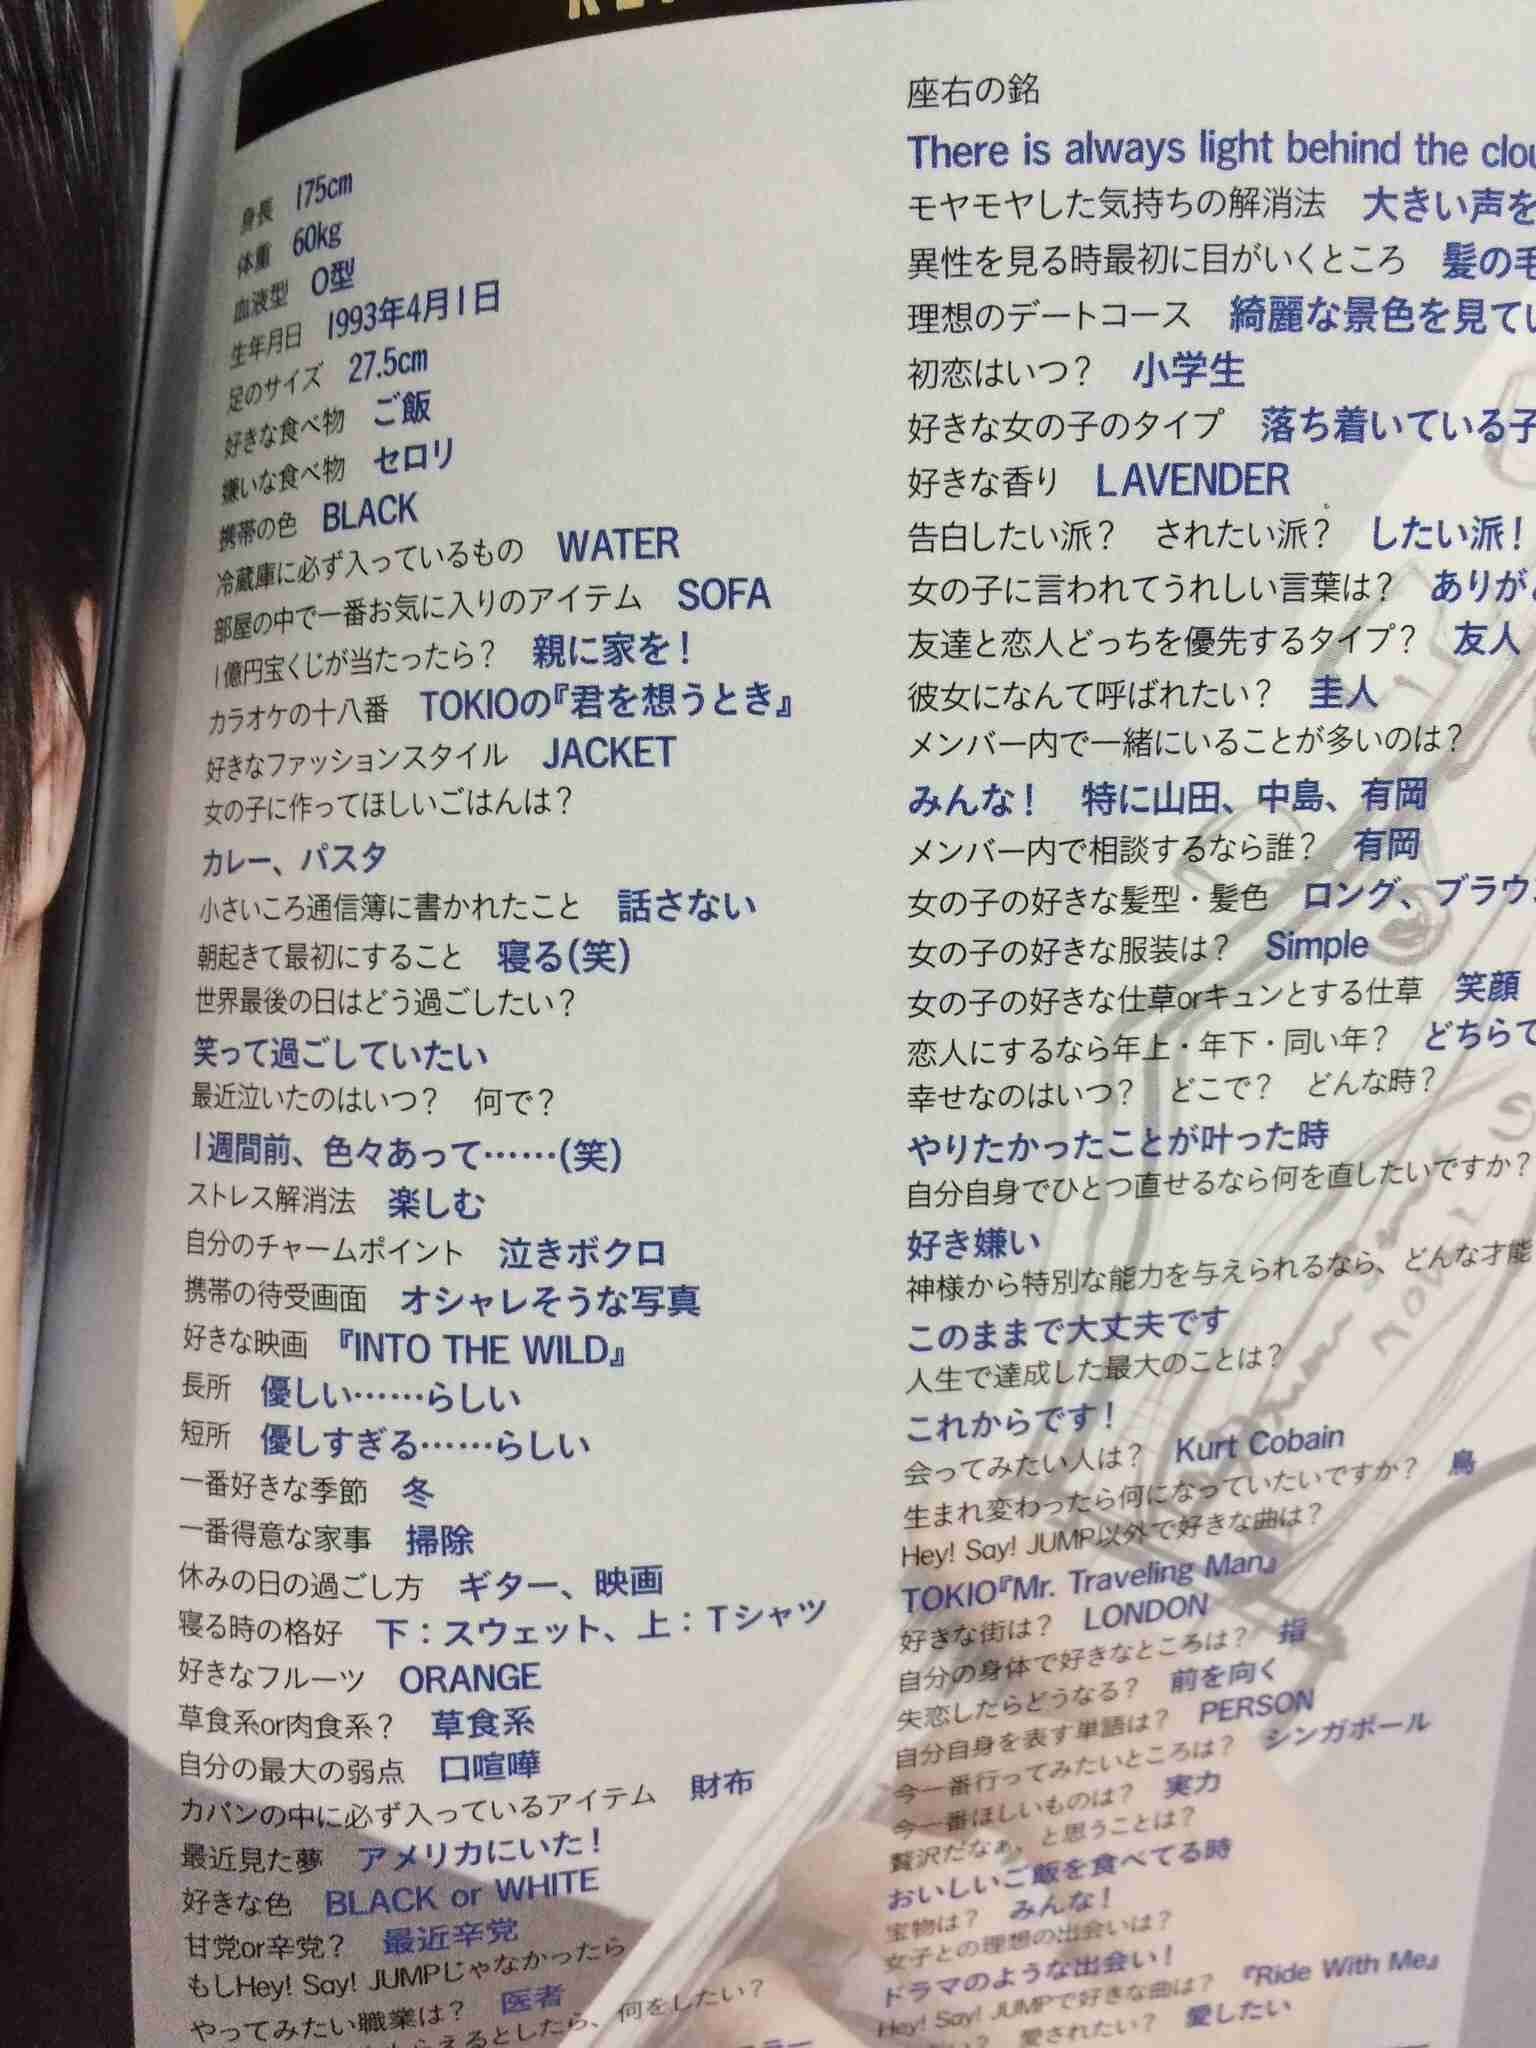 身長　175cm
体重　60kg
血液型　O型
生年月日　1993年4月1日
足のサイズ　27.5cm
好きな食べ物　ご飯
嫌いな食べ物　セロリ
携帯の色　BLACK
冷蔵庫に必ず入っているもの　WATER
部屋の中で一番お気に入りのアイテム　SOFA
1億円宝くじが当たったら？　親に家を！
カラオケの十八番　TOKIOの『君を想うとき』
好きなファッションスタイル　JACKET
女の子に作ってほしいごはんは？
カレー、パスタ
小さいころ通信簿に書かれたこと　話さない
朝起きて最初にすること　寝る（笑）
世界最後の日はどう過ごしたい？
笑って過ごしていたい
最近泣いたのはいつ？　何で？
1週間前、色々あって……（笑）
ストレス解消法　楽しむ
自分のチャームポイント　泣きボクロ
携帯の待受画面　オシャレそうな写真
好きな映画　『INTO THE WILD』
長所　優しい……らしい
短所　優しすぎる……らしい
一番好きな季節　冬
一番得意な家事　掃除
休みの日の過ごし方　ギター、映画
寝る時の格好　下：スウェット、上：Tシャツ
好きなフルーツ　ORANGE
草食系or肉食系？　草食系
自分の最大の弱点　口喧嘩
カバンの中に必ず入っているアイテム　財布
最近見た夢　アメリカにいた！
好きな色　BLACK or WHITE
甘党or辛党？　最近辛党
もしHey! Say! JUMPじゃなかったら
やってみたい職業は？　医者
らえるとしたら、何をしたい？
座右の銘
There is always light behind the
モヤモヤした気持ちの解消法　大きい声を
異性を見る時最初に目がいくところ　髪の毛
理想のデートコース　綺麗な景色を見てい
初恋はいつ？　小学生
好きな女の子のタイプ　落ち着いている子
好きな香り　LAVENDER
告白したい派？　されたい派？　したい派！
女の子に言われてうれしい言葉は？　ありが
友達と恋人どっちを優先するタイプ？　友人
彼女になんて呼ばれたい？　圭人
メンバー内で一緒にいることが多いのは？
みんな！　特に山田、中島、有岡
メンバー内で相談するなら誰？　有岡
女の子の好きな髪型・髪色　ロング、ブラウ
女の子の好きな服装は？　Simple
女の子の好きな仕草orキュンとする仕草　笑顔
恋人にするなら年上・年下・同い年？　どちらで
幸せなのはいつ？　どこで？　どんな時？
やりたかったことが叶った時
自分自身でひとつ直せるなら何を直したいですか？
好き嫌い
神様から特別な能力を与えられるなら、どんな才能
このままで大丈夫です
人生で達成した最大のことは？
これからです！
会ってみたい人は？　Kurt Cobain
生まれ変わったら何になっていたいですか？　鳥
Hey! Say! JUMP以外で好きな曲は？
TOKIO『Mr. Traveling Man』
好きな街は？　LONDON
自分の身体で好きなところは？　指
失恋したらどうなる？　前を向く
自分自身を表す単語は？　PERSON
今一番行ってみたいところは？　シンガポール
今一番ほしいものは？　実力
贅沢だなぁ、と思うことは？
おいしいご飯を食べてる時
宝物は？　みんな！
女子との理想の出会いは？
ドラマのような出会い！
Hey! Say! JUMPで好きな曲は？　『Ride With Me』
愛されたい？　愛したい